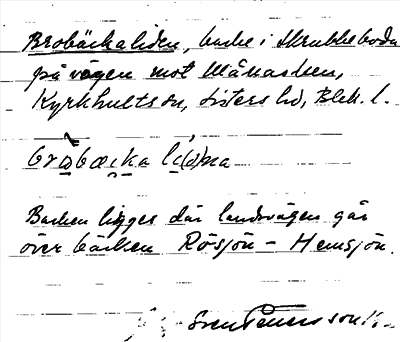 Brobäckaliden, backe i Skrubbeboda
på vägen mot Månasken,
Kyrkhults sn, Listers hd, Blek. l.
Backen ligger där landsvägen går
över bäcken Rösjön - Hemsjön.
Sven Petersson